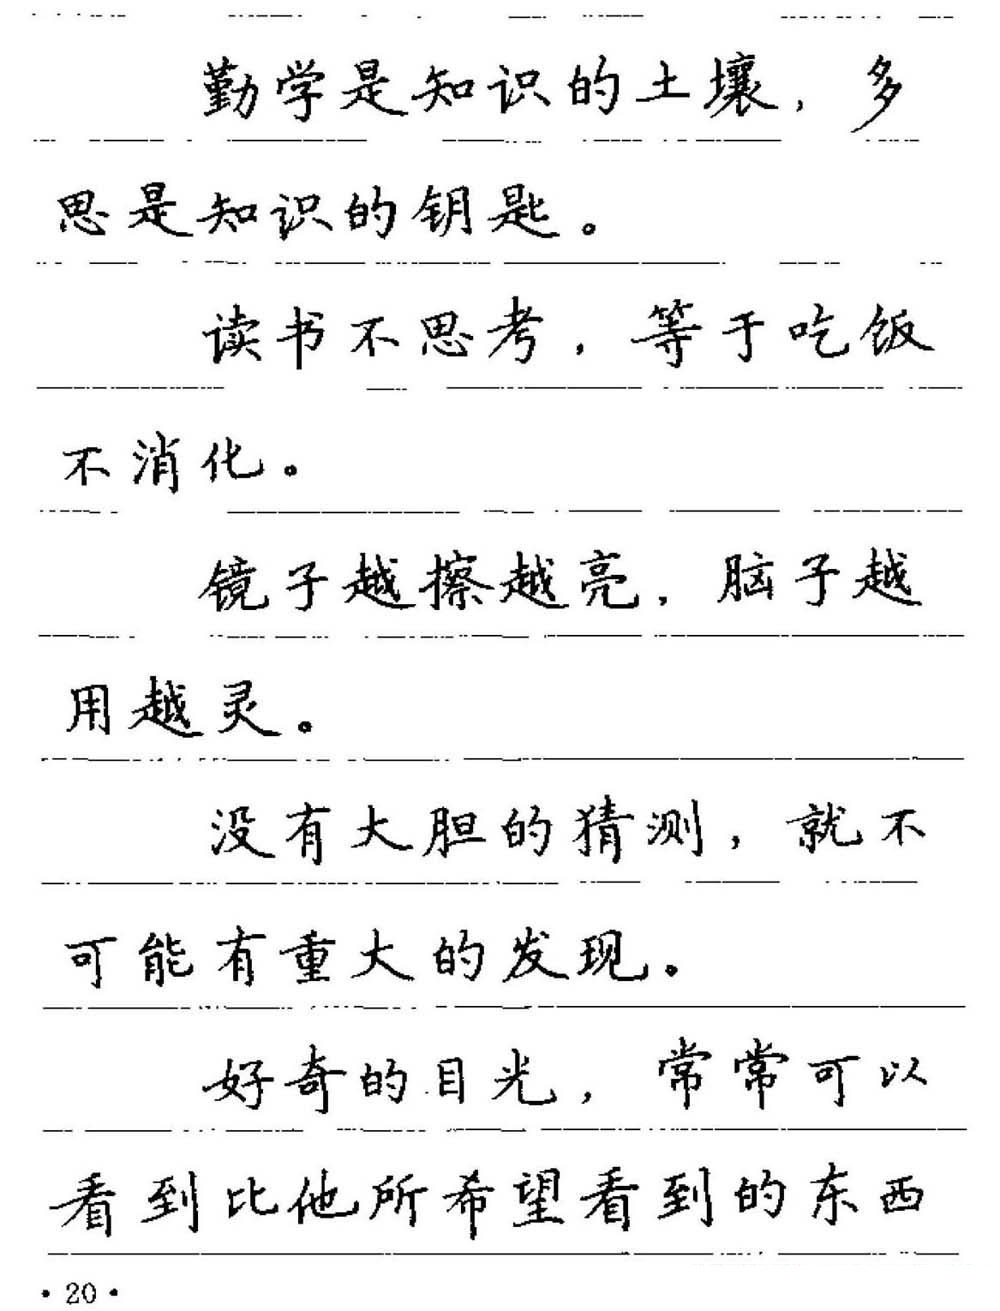 勤学是知识的土壤，多
思是知识的钥匙。
读书不思考，等于吃饭
不消化。
镜子越擦越亮，脑子越
用越灵。
没有大胆的猜测，就不
可能有重大的发现。
好奇的目光，常常可以
看到比他所希望看到的东西
·20·